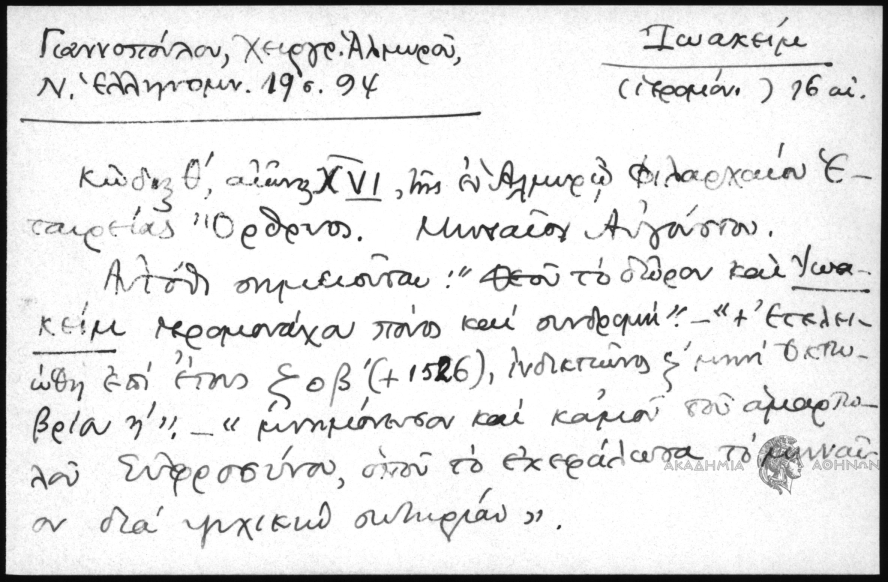 Γιαννοπούλου, Χειργρ. Ἁλμυροῦ,
Ν. Ἑλληνομν. 19 σ. 94
Ἰωακείμ
(ἱερομόν.) 16 αἰ.
Κῶδιξ θ', αἰῶνος XVI, τῆς ἐν Ἁλμυρῷ Φιλαρχαίου Ἑ-
ταιρείας "Ὄρθρυος. Μηναῖον Αὐγούστου.
Αὐτόθι σημειοῦται: "Θεοῦ τὸ δῶρον καὶ Ἰωα-
κείμ ἱερομονάχου πόνος καὶ συνδρομή". – "+ Ἐτελει-
ώθη ἐπὶ ἔτους ζοβ' (+1526), ἰνδικτιῶνος ξ' μηνὶ Ὀκτω-
βρίου η'". – "μνημόνευσον καὶ κἀμοῦ τοῦ ἁμαρτω-
λοῦ Εὐφροσύνου, ὁποῦ τὸ ἐκεφάλωσα τὸ μηναῖ-
ον διὰ ψυχικὴν σωτηρίαν".
ΑΚΑΔΗΜΙΑ ΑΘΗΝΩΝ